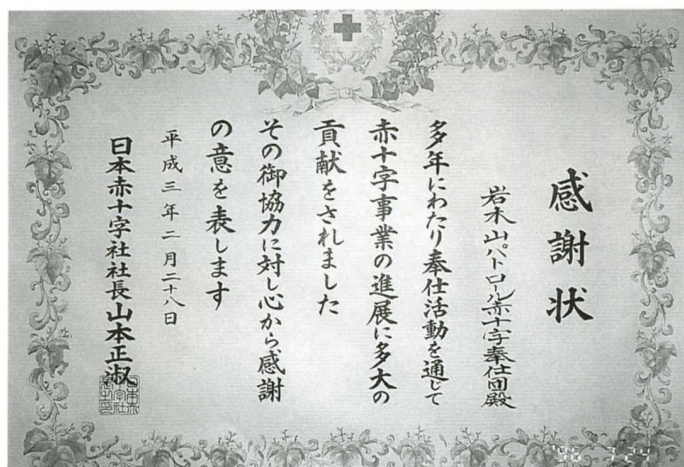 感謝状
岩木山パトロール赤十字奉仕団殿
多年にわたり奉仕活動を通じて
赤十字事業の進展に多大の
貢献をされました
その御協力に対し心から感謝
の意を表します
平成三年二月二十八日
日本赤十字社社長山本正淑